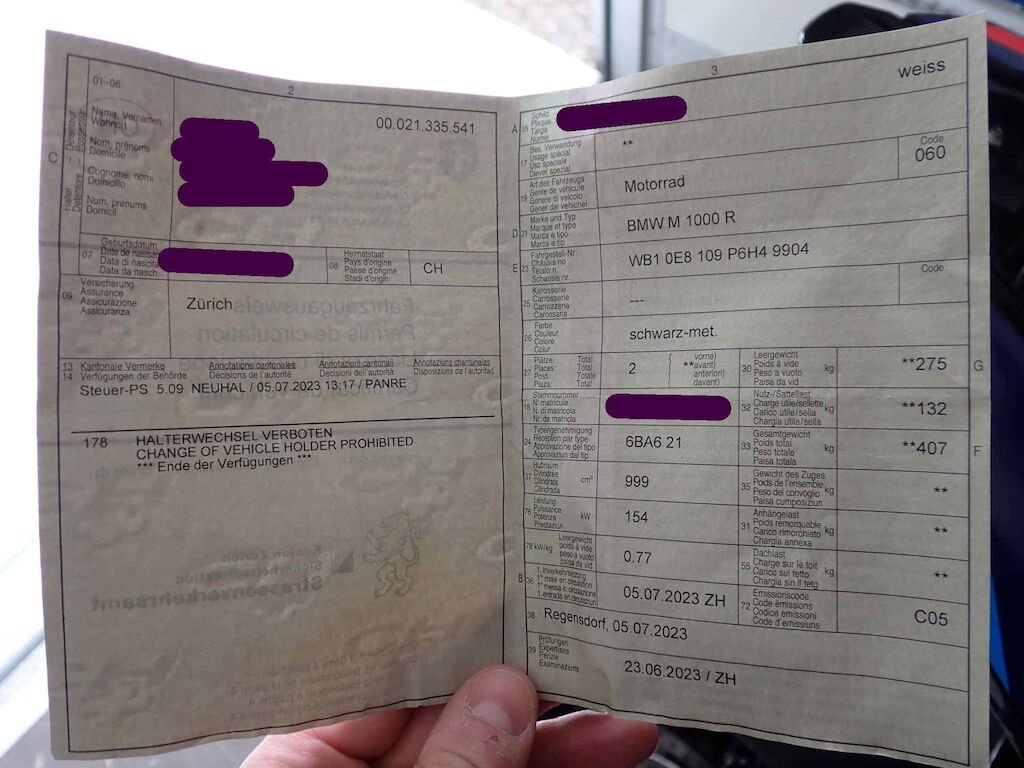 2
01-06
Name, Vornamen
Wohnort
Nom, prénoms
Domicile
Cognome, nomi
Domicilio
Num, prenums
Domicil
C
Halter
Détenteur
Detentore
Possessur
00.021.335.541
07
Geburtsdatum
Date de naissan
Data di nascita
Data da nasch.
08
Heimatstaat
Pays d'origine
Paese d'origine
Stadi d'origin
CH
09
Versicherung
Assurance
Assicurazione
Assicuranza
Zürich
13 Kantonale Vermerke Annotations cantonales Annotazioni cantonali Annotaziuns chantunalas
14 Verfügungen der Behörde Décisions de l'autorité Decisioni dell'autorità Disposiziuns da l'autoritad
Steuer-PS 5.09 NEUHAL / 05.07.2023 13:17 / PANRE
178 HALTERWECHSEL VERBOTEN
CHANGE OF VEHICLE HOLDER PROHIBITED
*** Ende der Verfügungen ***
Fahrzeugausweis
Permis de circulation
Kanton Zürich
Sicherheitsdirektion
Strassenverkehrsamt
3
weiss
A
15
Schild
Plaque
Targa
Numer
17
Bes. Verwendung
Usage spécial
Uso speciale
Diever spezial
**
Code
060
19
Art des Fahrzeugs
Genre de véhicule
Genere di veicolo
Gener dal vehichel
Motorrad
D
21
Marke und Typ
Marque et type
Marca e tipo
Marca e tip
BMW M 1000 R
E
23
Fahrgestell-Nr.
Châssis no
Telaio n.
Schassis nr.
WB1 0E8 109 P6H4 9904
25
Karosserie
Carrosserie
Carrozzeria
Carossaria
---
Code
26
Farbe
Couleur
Colore
Colur
schwarz-met.
27
Plätze: Total
Places: Total
Posti: Totale
Plazs: Total
2
( vorne)
( **avant)
( anteriori)
( davant)
30
Leergewicht
Poids à vide
Peso a vuoto
Paisa da vid
kg
**275
G
18
Stammnummer
N° matricule
N. di matricola
Nr. da matricla
32
Nutz-/Sattellast
Charge utile/sellette
Carico utile/sella
Chargia utila/sella
kg
**132
24
Typengenehmigung
Réception par type
Approvazione del tipo
Approvaziun dal tip
6BA6 21
33
Gesamtgewicht
Poids total
Peso totale
Paisa totala
kg
**407
F
37
Hubraum
Cylindrée
Cilindrata
Cilindrada
cm³
999
35
Gewicht des Zuges
Poids de l'ensemble
Peso del convoglio
Paisa cumposiziun
kg
**
76
Leistung
Puissance
Potenza
Prestaziun
kW
154
31
Anhängelast
Poids remorquable
Carico rimorchiato
Chargia annexa
kg
**
78 kW/kg
Leergewicht
poids à vide
peso a vuoto
paisa da vid
0.77
55
Dachlast
Charge sur le toit
Carico sul tetto
Chargia sin il tetg
kg
**
B
36
1. Inverkehrsetzung
1re mise en circulation
1a messa in circolazione
1. entrada en circulaziun
05.07.2023 ZH
72
Emissionscode
Code émissions
Codice emissioni
Code d'emissiuns
C05
38
Regensdorf, 05.07.2023
39
Prüfungen
Expertises
Perizie
Examinaziuns
23.06.2023 / ZH